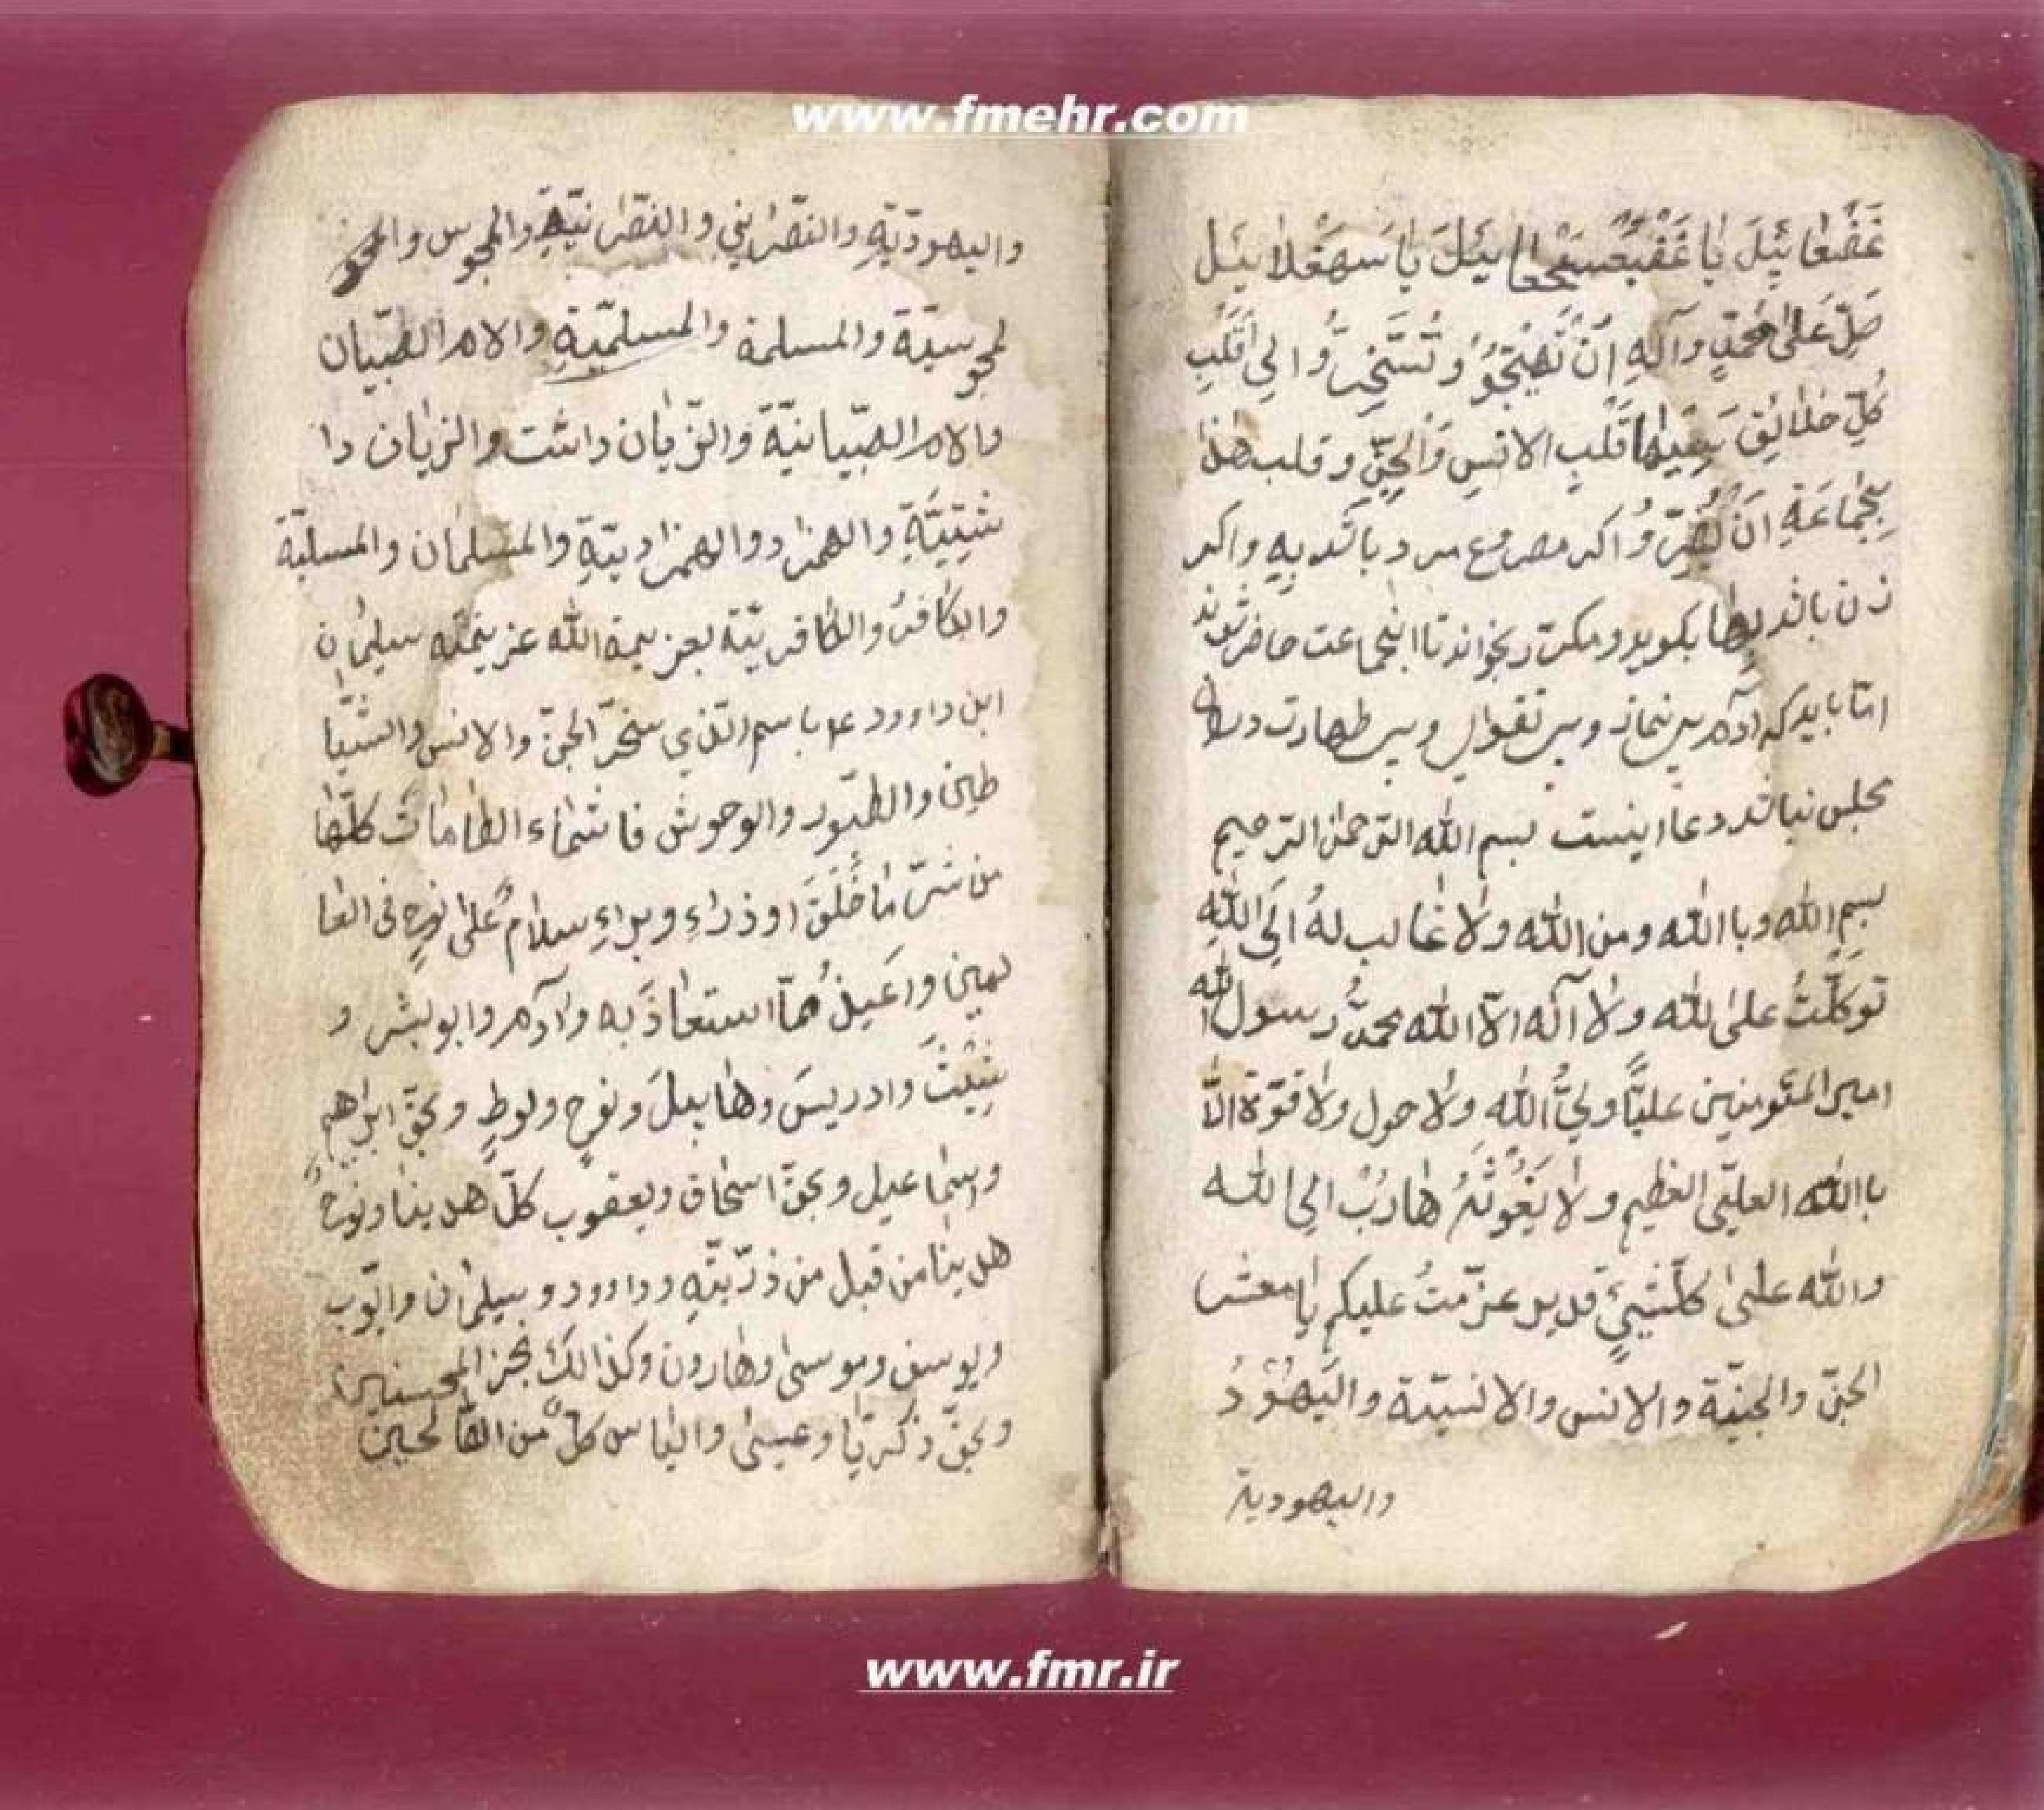 www.fmehr.com
صَلِّ عَلىٰ مُحَمَّدٍ وَآلِهِ اَنْ وَ تُسَخِّرُ و الی قَلْبِ
كُلِّ خلائِقَ قَلْبِ الانسِ وَالْجِنِّ و قلب هٰذا
بِجَمٰاعَةِ اَنْ و اكر مصروع مرد باشد بِهِ و اكر
زن باشد بِهٰا بكويد و مكرّر بخواند تا انجماعت حاضر شوند
امّا بايد كه آدم بی نماز و بی تقوای و بی طهارت دران
مجلس نباشد دعا اينست بسم الله الرّحمٰن الرّحيم
بسم الله و باالله و من الله ولا غالب لهُ اِلَی اللهِ
توكّلتُ علیٰ لله ولا آله الّا الله محمّدُ رسول الله
امير المئومنين عليّاً وليُّ الله ولا حول ولا قوّة الّا
باالله العليّی العظيم ولا هٰاربُ الی الله
والله علیٰ كلّشيیءٍ قدير عزّمتُ عليكم يٰا معشر
الجنّ والجنيّة والانس والانسيّة واليَهُوُدُ
واليهودية
واليهوديّةِ والنصّرانی والنصّرانيّةِ والمجوس والمجو
لمجوسيّة والمسلمة والمسلميّةِ والام الصّبيان
والام الصّبيانيّة والزّيان داشت والزيان دا
شتيّةِ والهمزاد والهمزاديّةِ والمسلمان والمسليّة
والكافرُ والكافريّة بعزيمة الله عزيمته سليمٰان
ابن داوود ع باسم الّذي سخّر الجنّ والانس والشّيٰا
طين والطيّور والوحوش الطٰامٰات كلّهٰا
من شرّ مٰا خَلَقَ او ذراءِ و براءِ سلامٌ علیٰ نوحٍ فی العٰا
لمين و استعاذَ به وآدم وابو لبشر و
شيث و ادريسَ و هٰابيلَ و نوحٍ و لوطٍ و بحقّ ابراهيم
و اسمٰاعيل و بحقّ اسحٰاق و يعقوب كلّاً هدينا و نوحاً
هدينٰا من قبل من ذرّيّتهِ و داوود و سليمٰان و ايّوب
و يوسف و موسیٰ و هٰارون و كذالك نجز المحسنين
و بحقّ ذكريّا و عيسیٰ و اليٰاس كلٌّ من الصّالحين
www.fmr.ir